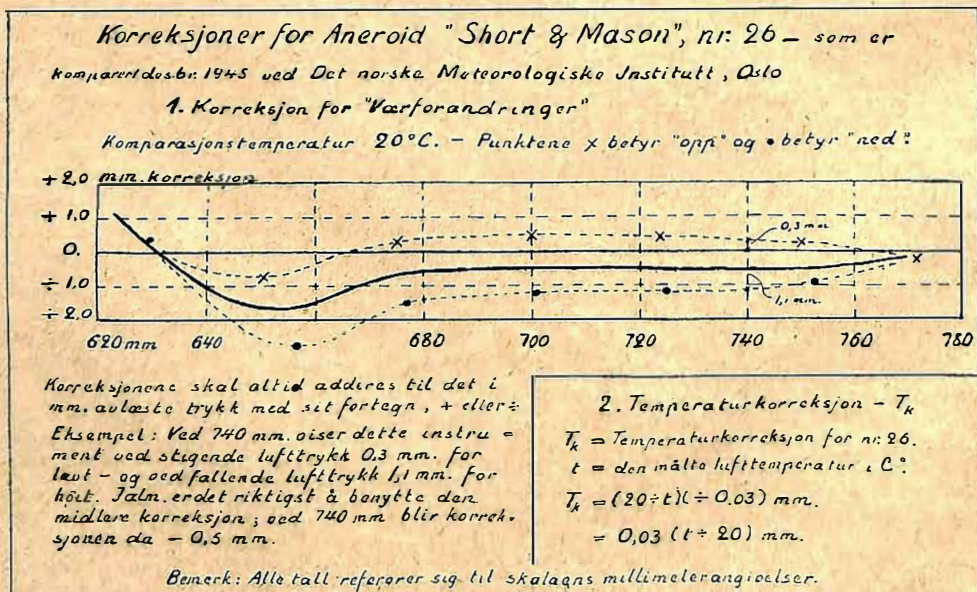 Korreksjoner for Aneroid "Short & Mason", nr. 26 – som er
komparert des.br. 1945 ved Det norske Meteorologiske Institutt, Oslo
1. Korreksjon for "Værforandringer"
Komparasjonstemperatur 20°C. – Punktene x betyr "opp" og • betyr "ned".
+ 2,0 mm. korreksjon
+ 1,0
0,3 mm
0.
÷ 1.0
1,1 mm.
÷ 2.0
620 mm 640 680 700 720 740 760 780
Korreksjonene skal altid adderes til det i
mm. avlæste trykk med sit fortegn, + eller ÷
Eksempel: Ved 740 mm. viser dette instru =
ment ved stigende lufttrykk 0.3 mm. for
lavt – og ved fallende lufttrykk 1,1 mm. for
høit. I alm. er det riktigst å benytte den
midlere korreksjon; ved 740 mm blir korrek-
sjonen da – 0,5 mm.
2. Temperaturkorreksjon – Tk
Tk = Temperaturkorreksjon for nr. 26.
t = den målte lufttemperatur i C°.
Tk = (20 ÷ t)(÷ 0.03) mm.
= 0,03 (t ÷ 20) mm.
Bemerk: Alle tall refererer sig til skalaens millimeterangivelser.